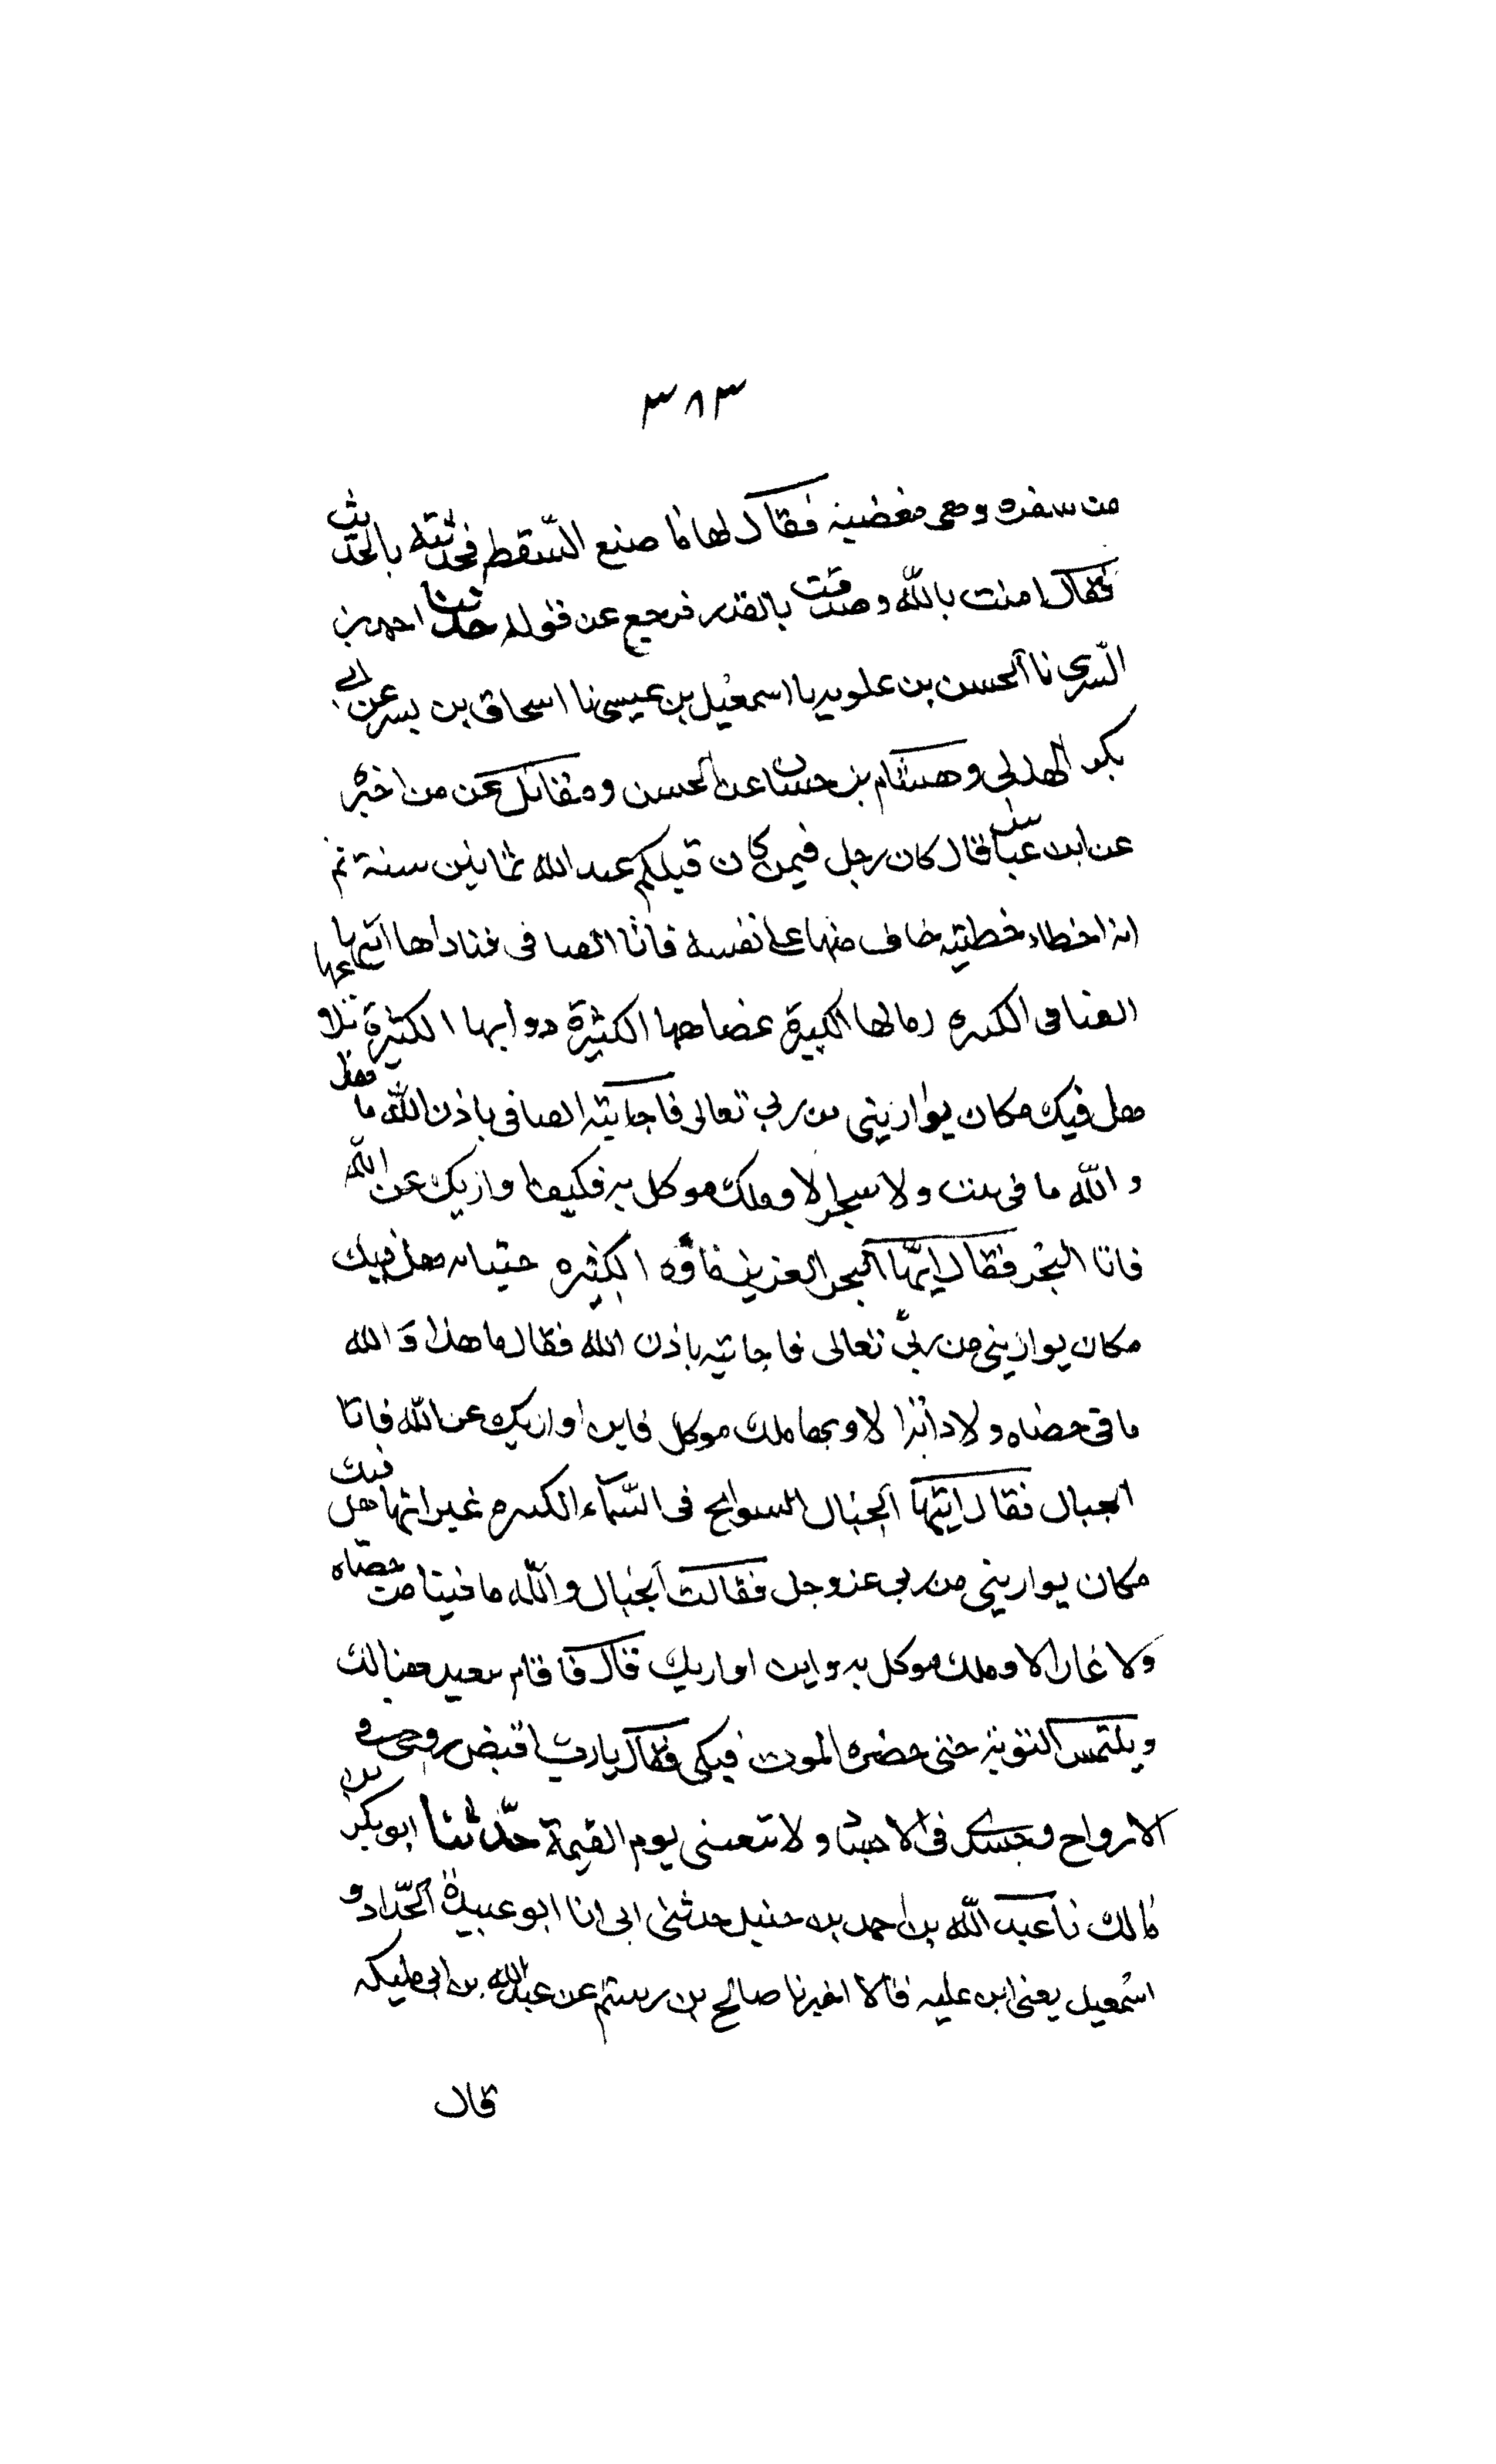 ٣٨٣
من سفره وهى مغضبه فقال لها ما صنع السّقط فحدثته بالحديث
فقال امنت بالله وصدقت بالقدر فرجع عن قوله حدثنا احمد بن
السّرى نا الحسن بن علويه نا اسمعيل بن عيسى نا اسحاق بن بسر عن ابى
بكر الهدلى وهشام بن حسان عن الحسن ومقاتل عن من اخبره
عن ابن عباس قال كان رجل فيمن كان قبلكم عبد الله ثمانين سنة ثم
انه اخطاء خطيئه خاف منها على نفسه فاتا الفيافى فناداها ايتها
الفيافى الكثيره رمالها الكثيرة عضاهها الكثيرة دوابها الكثيرة تلالها
هل فيك مكان يوارينى من ربى تعالى فاجابته الفيافى باذن الله ما هذا
والله ما فى نبت ولا شجر الا وملك موكل به فكيف اواريك عن الله
فاتا البحر فقال ايّها البحر العزيز ماؤه الكثيره حيتانه هل فيك
مكان يوارينى من ربّى تعالى فاجابته باذن الله فقال ما هذا والله
ما فى حصاه ولا دابة الا وبها ملك موكل فاين اواريك عن الله فاتا
الجبال فقال ايتها الجبال السوامخ فى السّماء الكثيره غيرانها هل فيك
مكان يوارينى من ربى عز وجل فقالت الجبال والله ما فينا من حصاه
ولا غار الا وملك موكل به واين اواريك قال فاقام يتعبد هنالك
ويلتمس التوبه حتى حضره الموت فبكى فقال يا رب اقبض روحى فى
الارواح وجسدى فى الاجساد ولا تبعثنى يوم القيمة حدّثنا ابو بكر بن
مالك نا عبد الله بن احمد بن حنبل حدثنى ابى انا ابو عبيدة الحدّاد و
اسمعيل يعنى ابن عليه قالا اخبرنا صالح بن رستم عن عبد الله بن ابى مليكه
قال